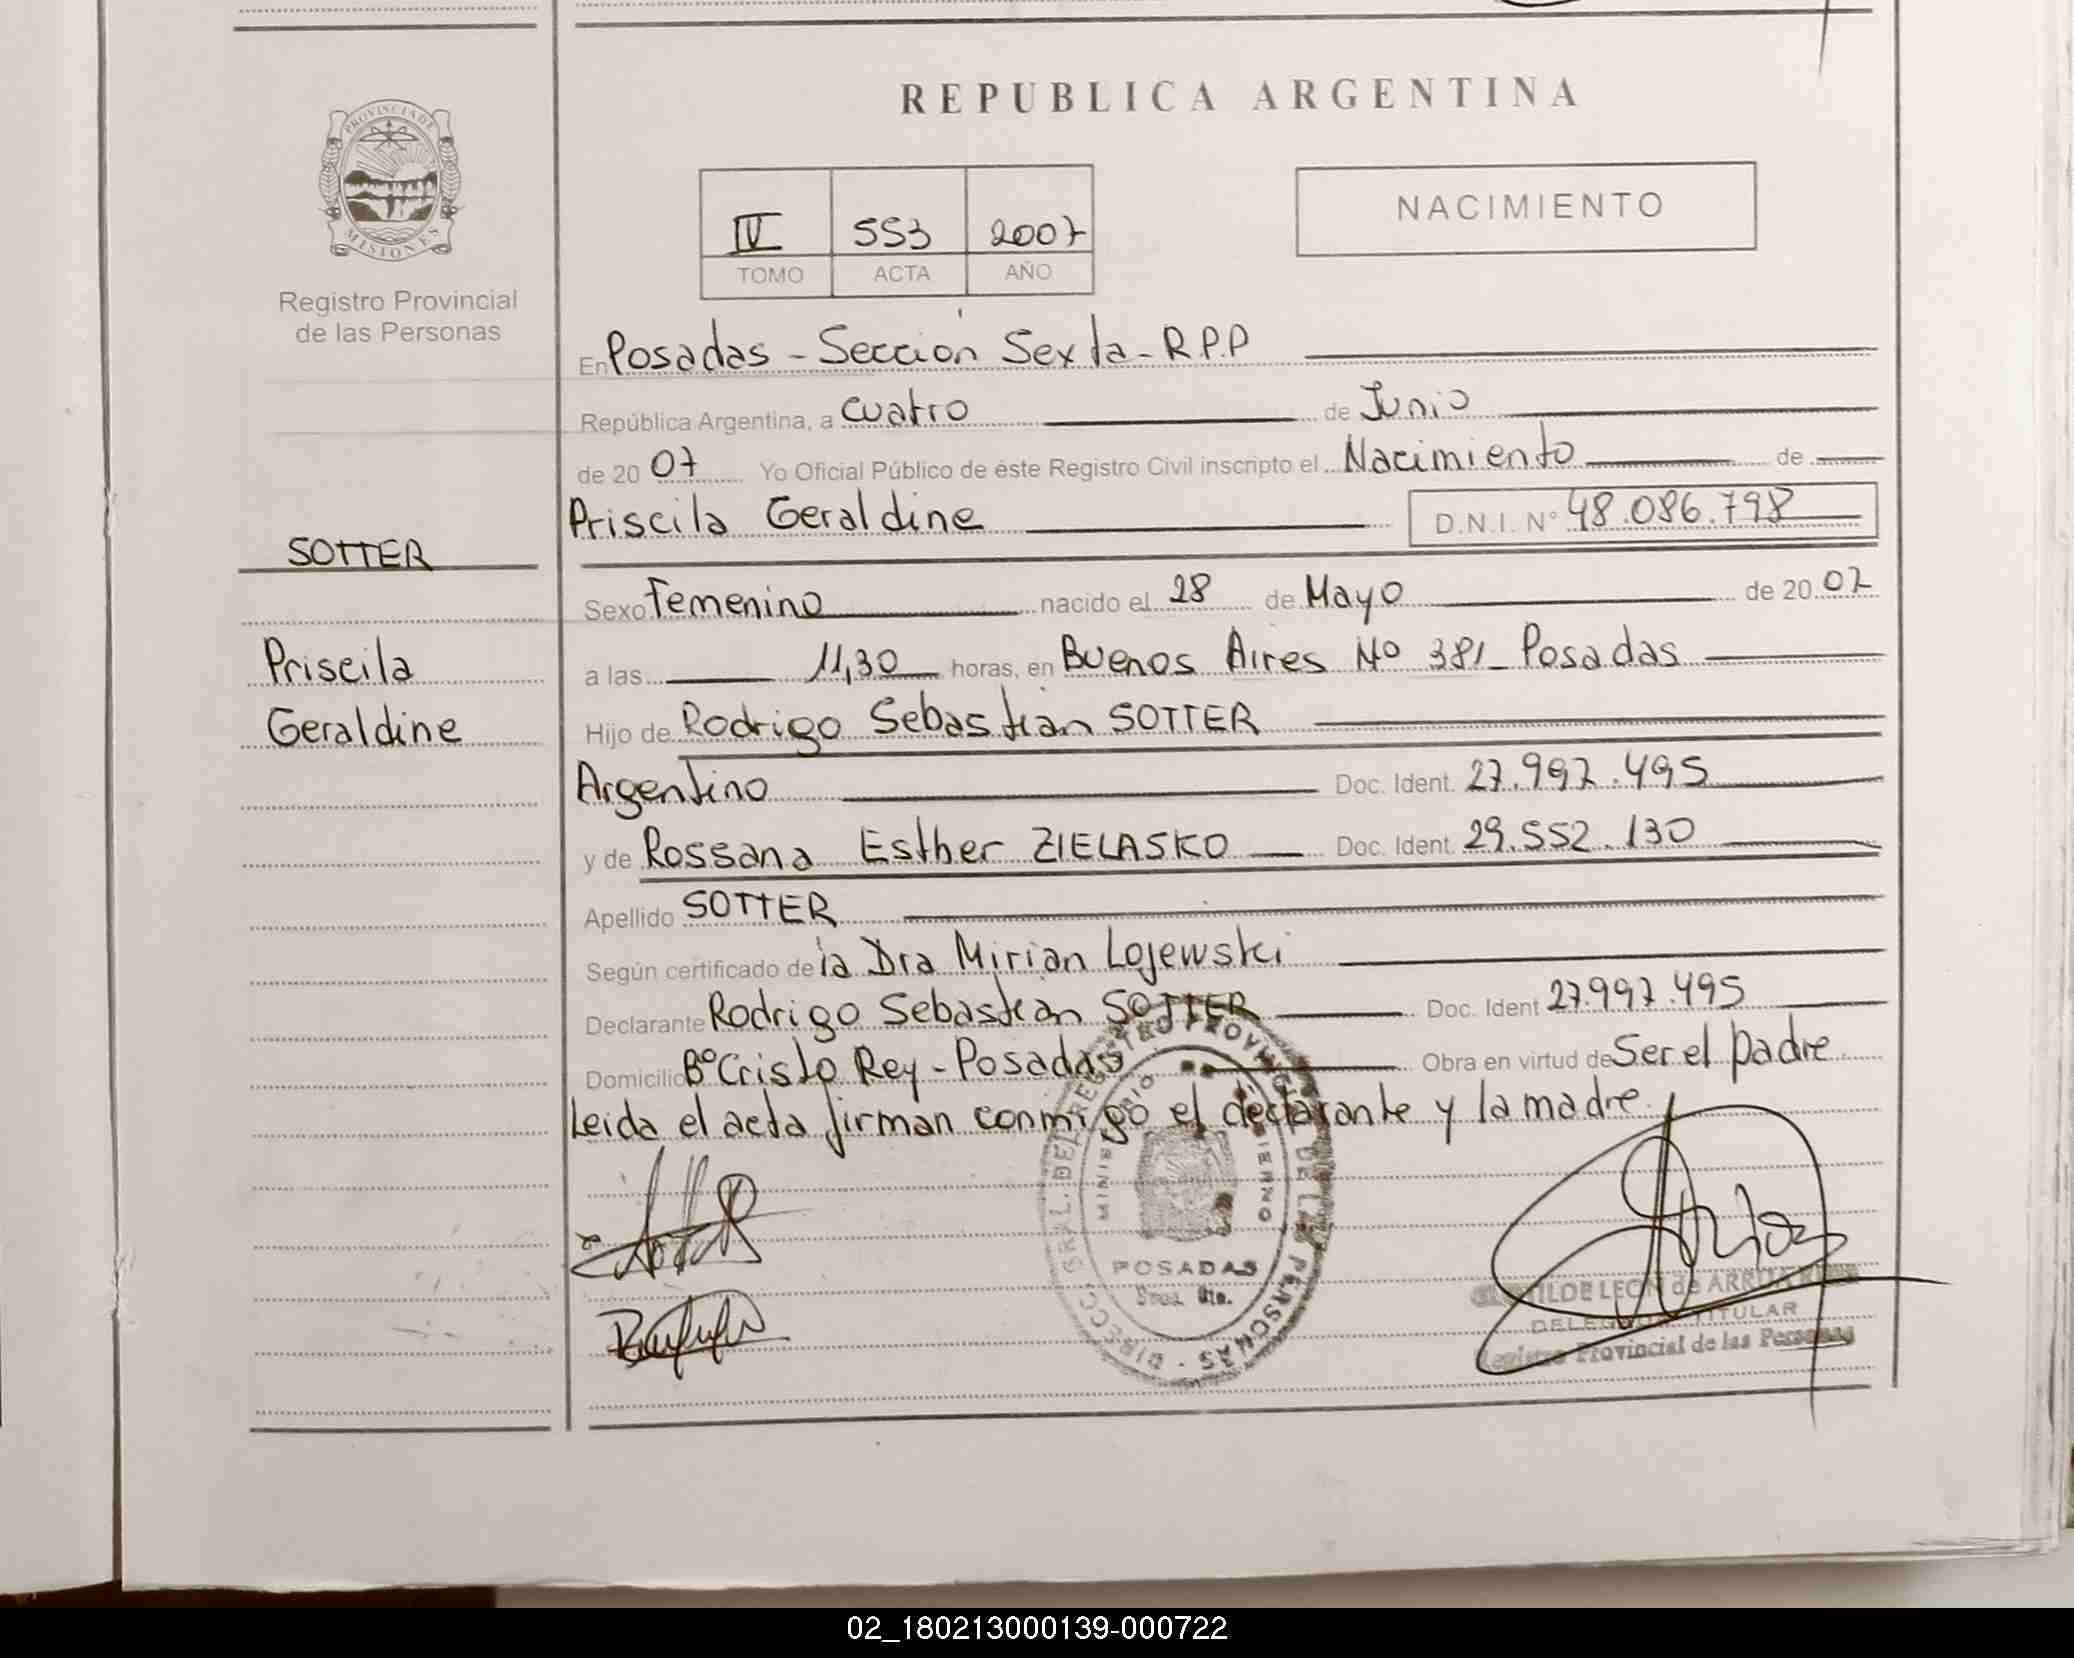 REPUBLICA ARGENTINA
PROVINCIA DE
MISIONES
Registro Provincial
de las Personas
NACIMIENTO
IV 553 2007
TOMO ACTA AÑO
En Posadas - Sección Sexta - R.P.P
República Argentina, a cuatro de Junio
de 20 07 Yo Oficial Público de éste Registro Civil inscripto el Nacimiento de
Priscila Geraldine D.N.I. Nº 48.086.798
SOTTER
Sexo Femenino nacido el 28 de Mayo de 20 07
Priscila
a las 11,30 horas, en Buenos Aires Nº 381_ Posadas
Geraldine
Hijo de Rodrigo Sebastian SOTTER
Argentino Doc. Ident. 27.997.495
y de Rossana Esther ZIELASKO Doc. Ident. 29.552.130
Apellido SOTTER
Según certificado de la Dra Mirian Lojewski
Declarante Rodrigo Sebastian SOTTER Doc. Ident 27.997.495
Domicilio Bº Cristo Rey - Posadas Obra en virtud de Ser el padre
Leida el acta firman conmigo el declarante y la madre
DIRECC. GRAL. DEL REGISTRO PROVINCIAL DE LAS PERSONAS
MINISTERIO GOBIERNO
POSADAS
DE LEON de ARR
DELEGADA TITULAR
Registro Provincial de las Personas
02_180213000139-000722